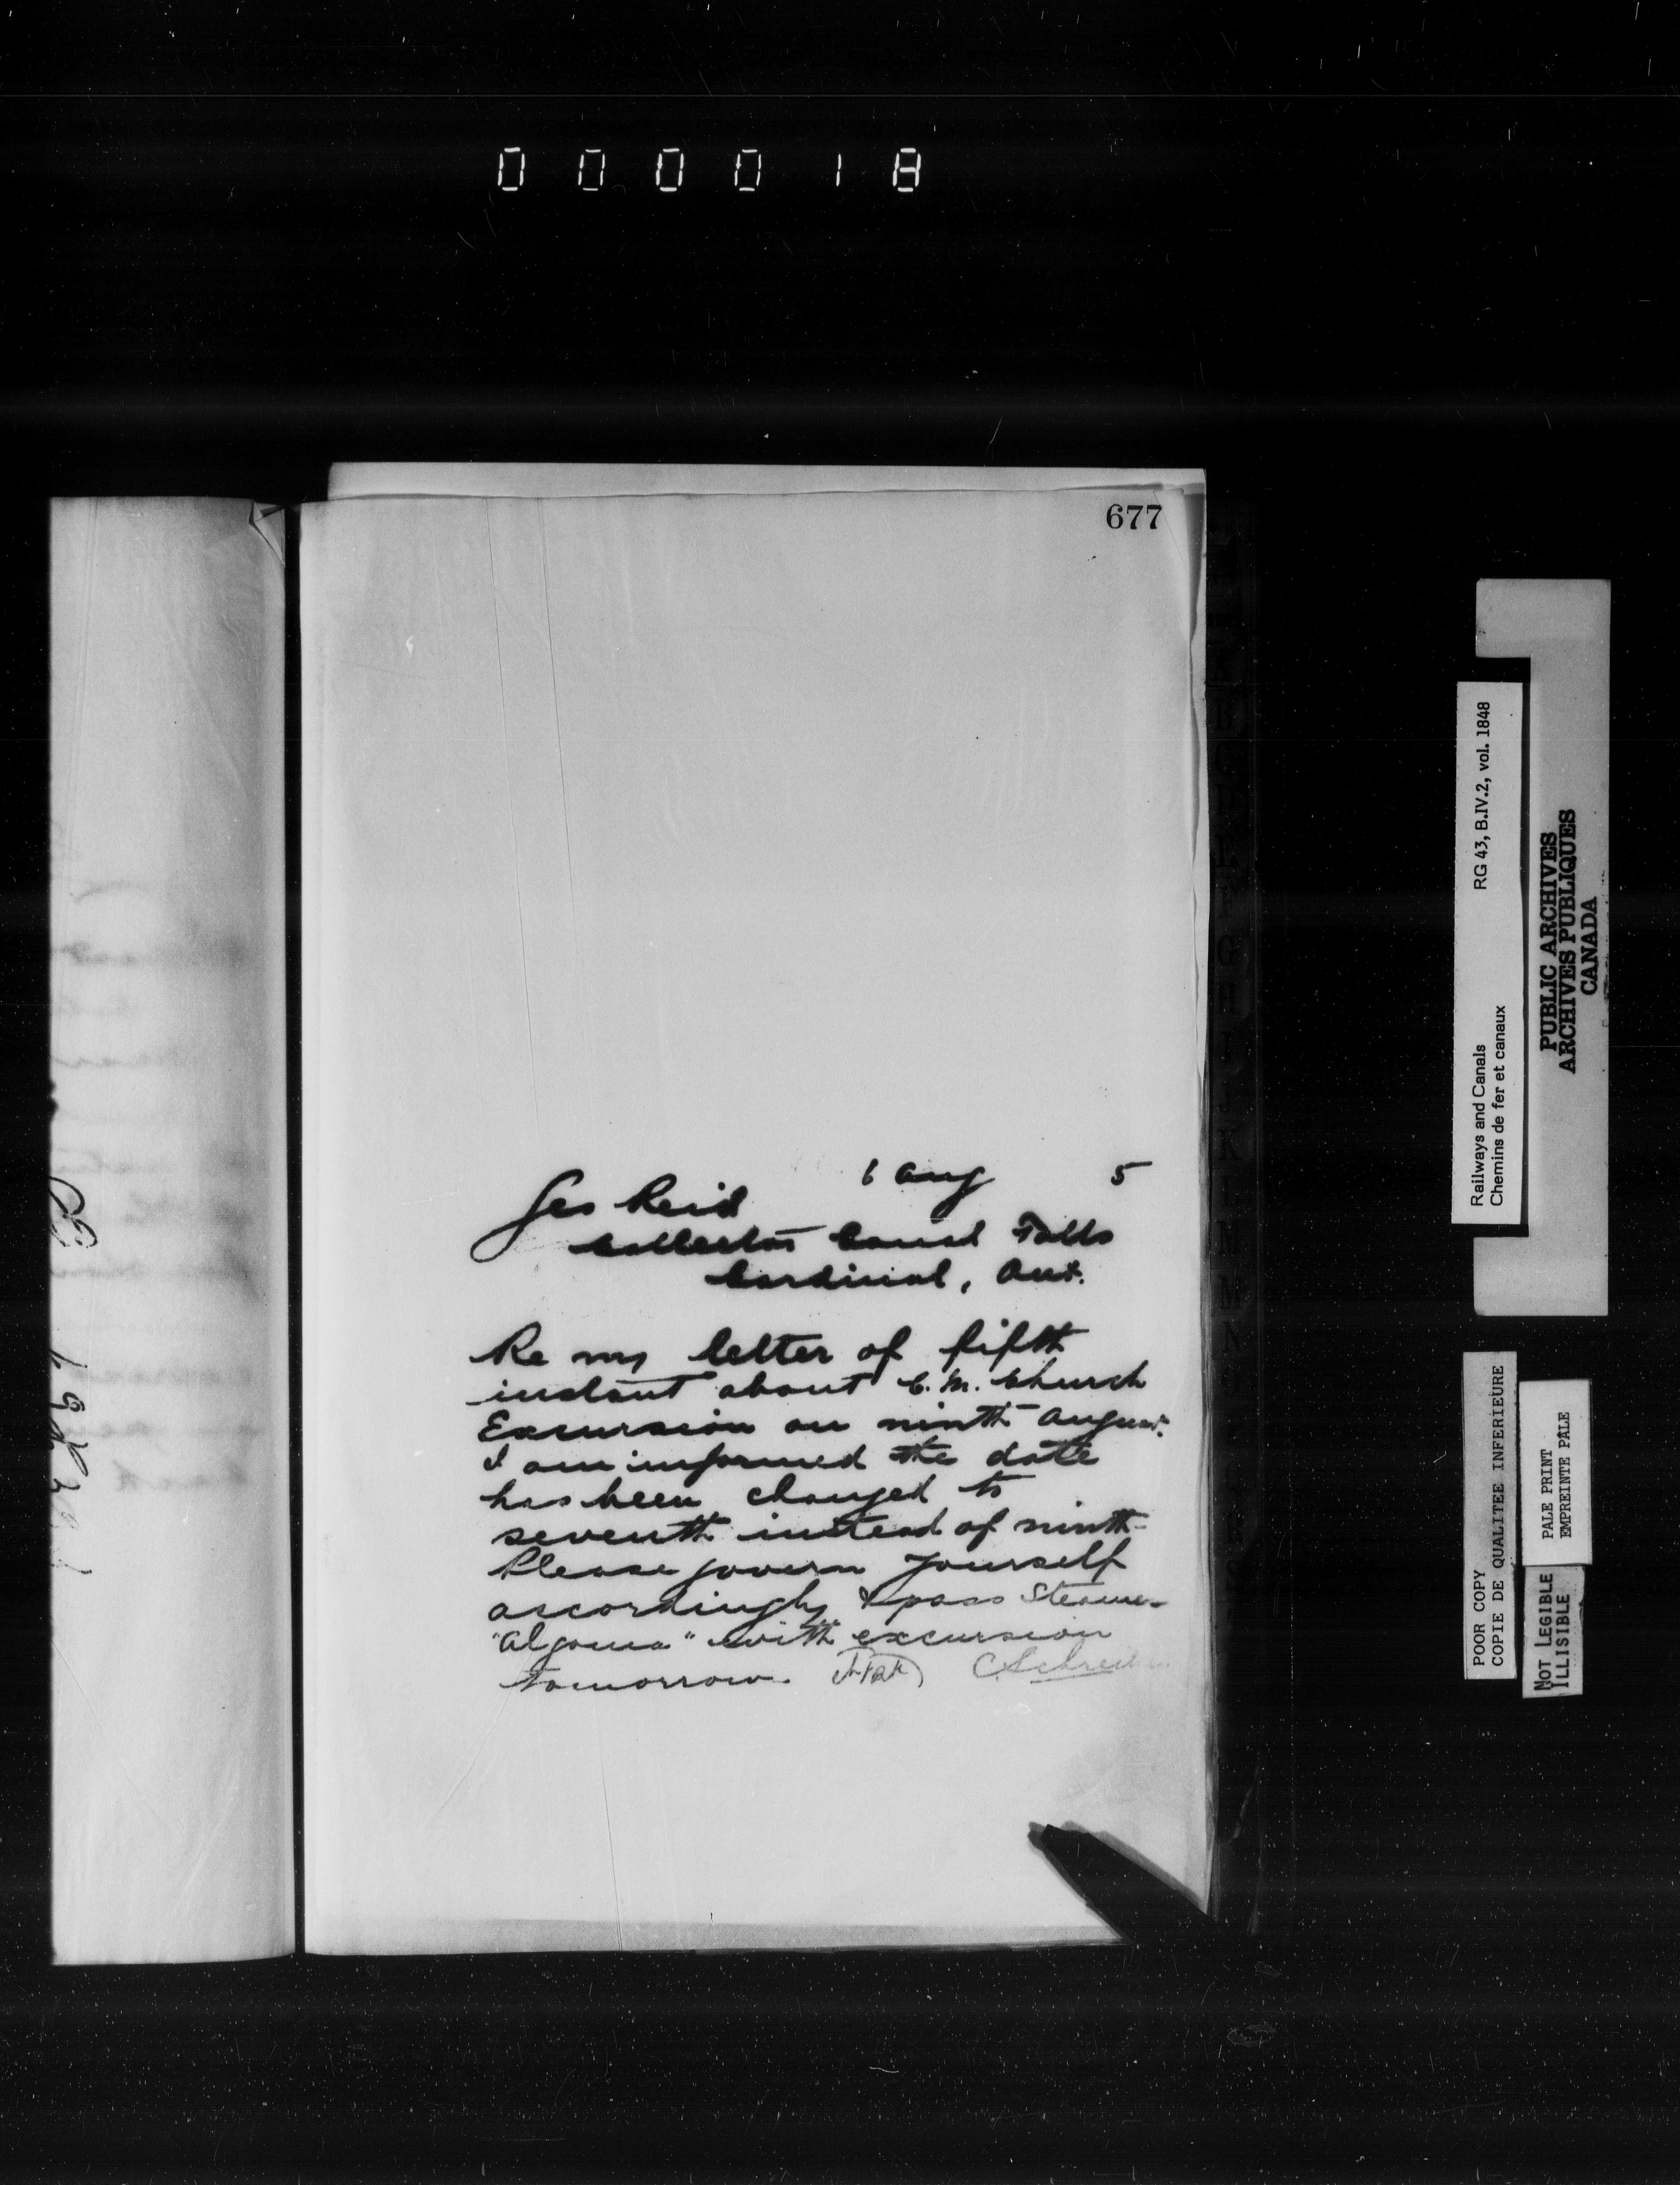 0 0 0 0 1 8
677
6 Aug 5
Geo Reid
Collector Canal Tolls
Cardinal, Ont.
Re my letter of fifth
instant about C. M. Church
Excursion on ninth August.
I am informed the date
has been changed to
seventh instead of ninth.
Please govern yourself
accordingly & pass Steamer
"Algoma" with excursion
tomorrow. C Schreiber
Railways and Canals RG 43, B.IV.2, vol. 1848
Chemins de fer et canaux
PUBLIC ARCHIVES
ARCHIVES PUBLIQUES
CANADA
POOR COPY
COPIE DE QUALITEE INFERIEURE
PALE PRINT
EMPREINTE PÂLE
NOT LEGIBLE
ILLISIBLE